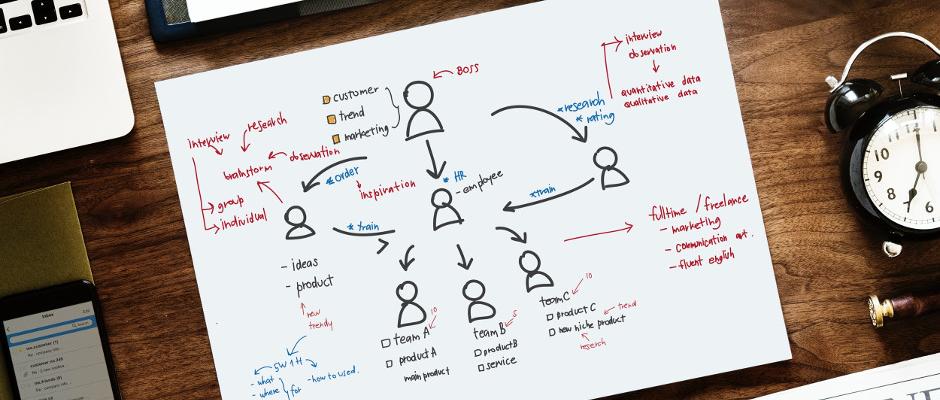 BOSS
customer
trend
marketing
interview
dosevation
quantitative data
qualitative data
*research
* rating
interview
research
dosevation
brainstorm
group
individual
*order
inspiration
* HR
- employee
*train
* train
- ideas
- product
new
trendy
5W1H
- what
- where
for
- how to used.
10
team A
product A
main product
5
team B
product B
service
10
team C
product C
trend
new niche product
research
fulltime / freelance
- marketing
- communication
- fluent english
Inbox
12
10
9
8
7
6